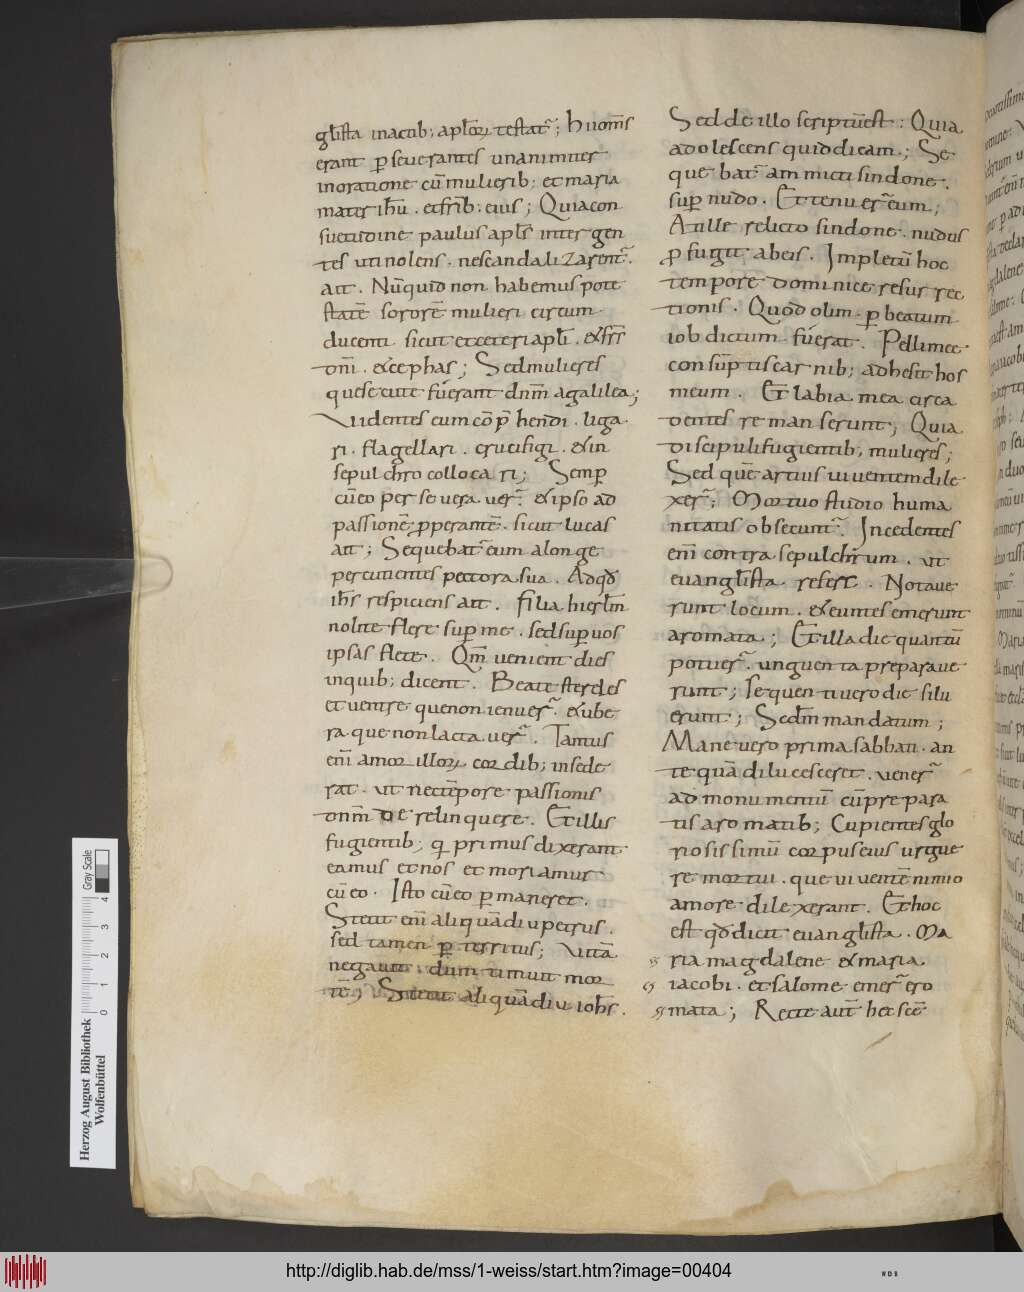 gl̄ista inactib; apl̄oꝝ testat᷑; Hii om̄s
erant ꝑseuerantes unanimiter
inoratione cū mulierib; et maria
mater ih̄u. et fr̄ib; eius; Quia con
suetudine paulus apl̄s inter gen
tes uti nolens. ne scandalizarent᷑.
ait. Nūquid non habemus pote
statē sororē mulieri circum
ducenti. sicut et ceteri apl̄i. & fr̄s
dn̄i. & cephas; Sed mulieres
que secute fuerant dn̄m a galilea;
Videntes eum cōp̄hendi. liga
ri. flagellari. crucifigi. & in
sepulchro collocari; Semꝑ
cū eo perseuerauer᷑. & ipso ad
passionē ꝓperantē. sicut lucas
ait; Sequebat᷑ eum a longe
percutientes pectora sua. Ad qđ
ih̄s respiciens ait. Filia hierl̄m
nolite flere suꝑ me. sed suꝑ uos
ipsas flete. Qm̄ uenient dies
in quib; dicent. Beate steriles
et uentre que non ienuer᷑. & ube
ra que non lactauer᷑. Tantus
eni̅ amor illoꝝ cordib; insede
rat. ut nec tēpore passionis
dn̄m de relinquere. Et illis
fugientib; q̄ primus dixerant
eamus et nos et moriamur
cū eo. Isto cū eo ꝑmaneret.
Stetit eni̅ aliquādiu petrus.
sed tamen ꝑterritus; Vitā
negauit. dum timuit mor
tē; Stetit aliquādiu ioh̄s.
Sed de illo scriptū est: Quia
adolescens quidē cam; Se
quebat᷑ amictus sindone.
suꝑ nudo. Et tenuer᷑ eum;
At ille relicto sindone. nudus
ꝓfugit ab eis. Impletū hoc
tempore dominice resurrec
tionis. Quod olim. ꝑ beatum
iob dictum fuerat. Pelli mee
consūptis carnib; adhesit hos
meum. Et labia mea circa
dentes remanserunt; Quia
discipuli fugientib; mulieres;
Sed quē artius uiuentem dile
xer᷑; Mortuo studio huma
nitatis obsecunt᷑. Incedentes
eni̅ contra sepulchrum. ut
euangl̄ista refert. Notaue
runt locum. & euntes emerunt
aromata; Et illa die quantū
potuer᷑. unguenta preparaue
runt; sequenti uero die silu
erunt; Sedm̄ mandatum;
Mane uero prima sabbati. an
te quā dilucesceret. uener᷑
ad monumentū cū prepara
tis aromatib; Cupientes glo
riosissimū corpus eius urgue
re mortui. que uiuentē nimio
amore dilexerant. Et hoc
est qđ dicit euangl̄ista. Ma
ria magdalene & maria
iacobi. et salome emer᷑ ero
mata; Recte aut̄ hec scē
Herzog August Bibliothek
Wolfenbüttel
Gray Scale
0 1 2 3 4
http://diglib.hab.de/mss/1-weiss/start.htm?image=00404